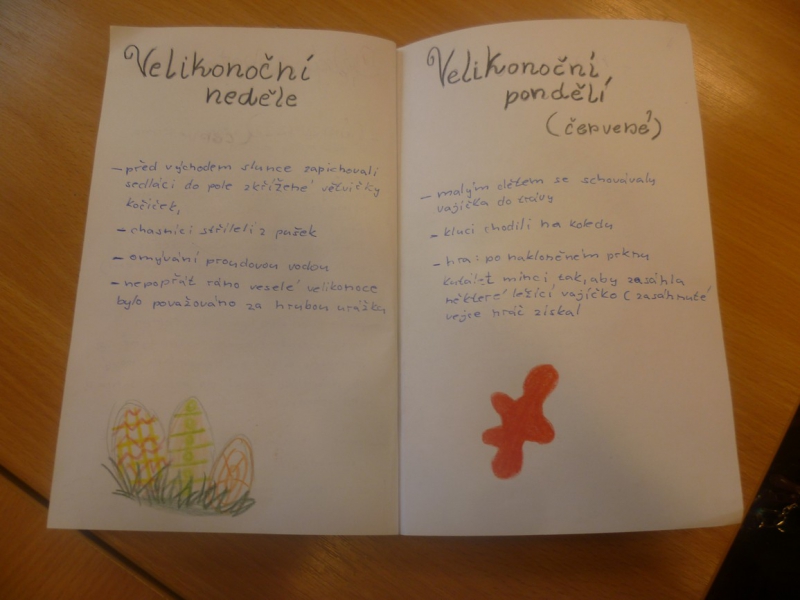 Velikonoční
neděle
- před východem slunce zapichovali
sedláci do pole zkřížené větvičky
kočiček,
- chasníci stříleli z pušek
- omývání proudovou vodou
- nepopřát ráno veselé velikonoce
bylo považováno za hrubou urážku
Velikonoční
pondělí
(červené)
- malým dětem se schovávaly
vajíčka do trávy
- kluci chodili na koledu
- hra: po nakloněném prknu
kutálet minci tak, aby zasáhla
některé ležící vajíčko (zasáhnuté
vejce hráč získal